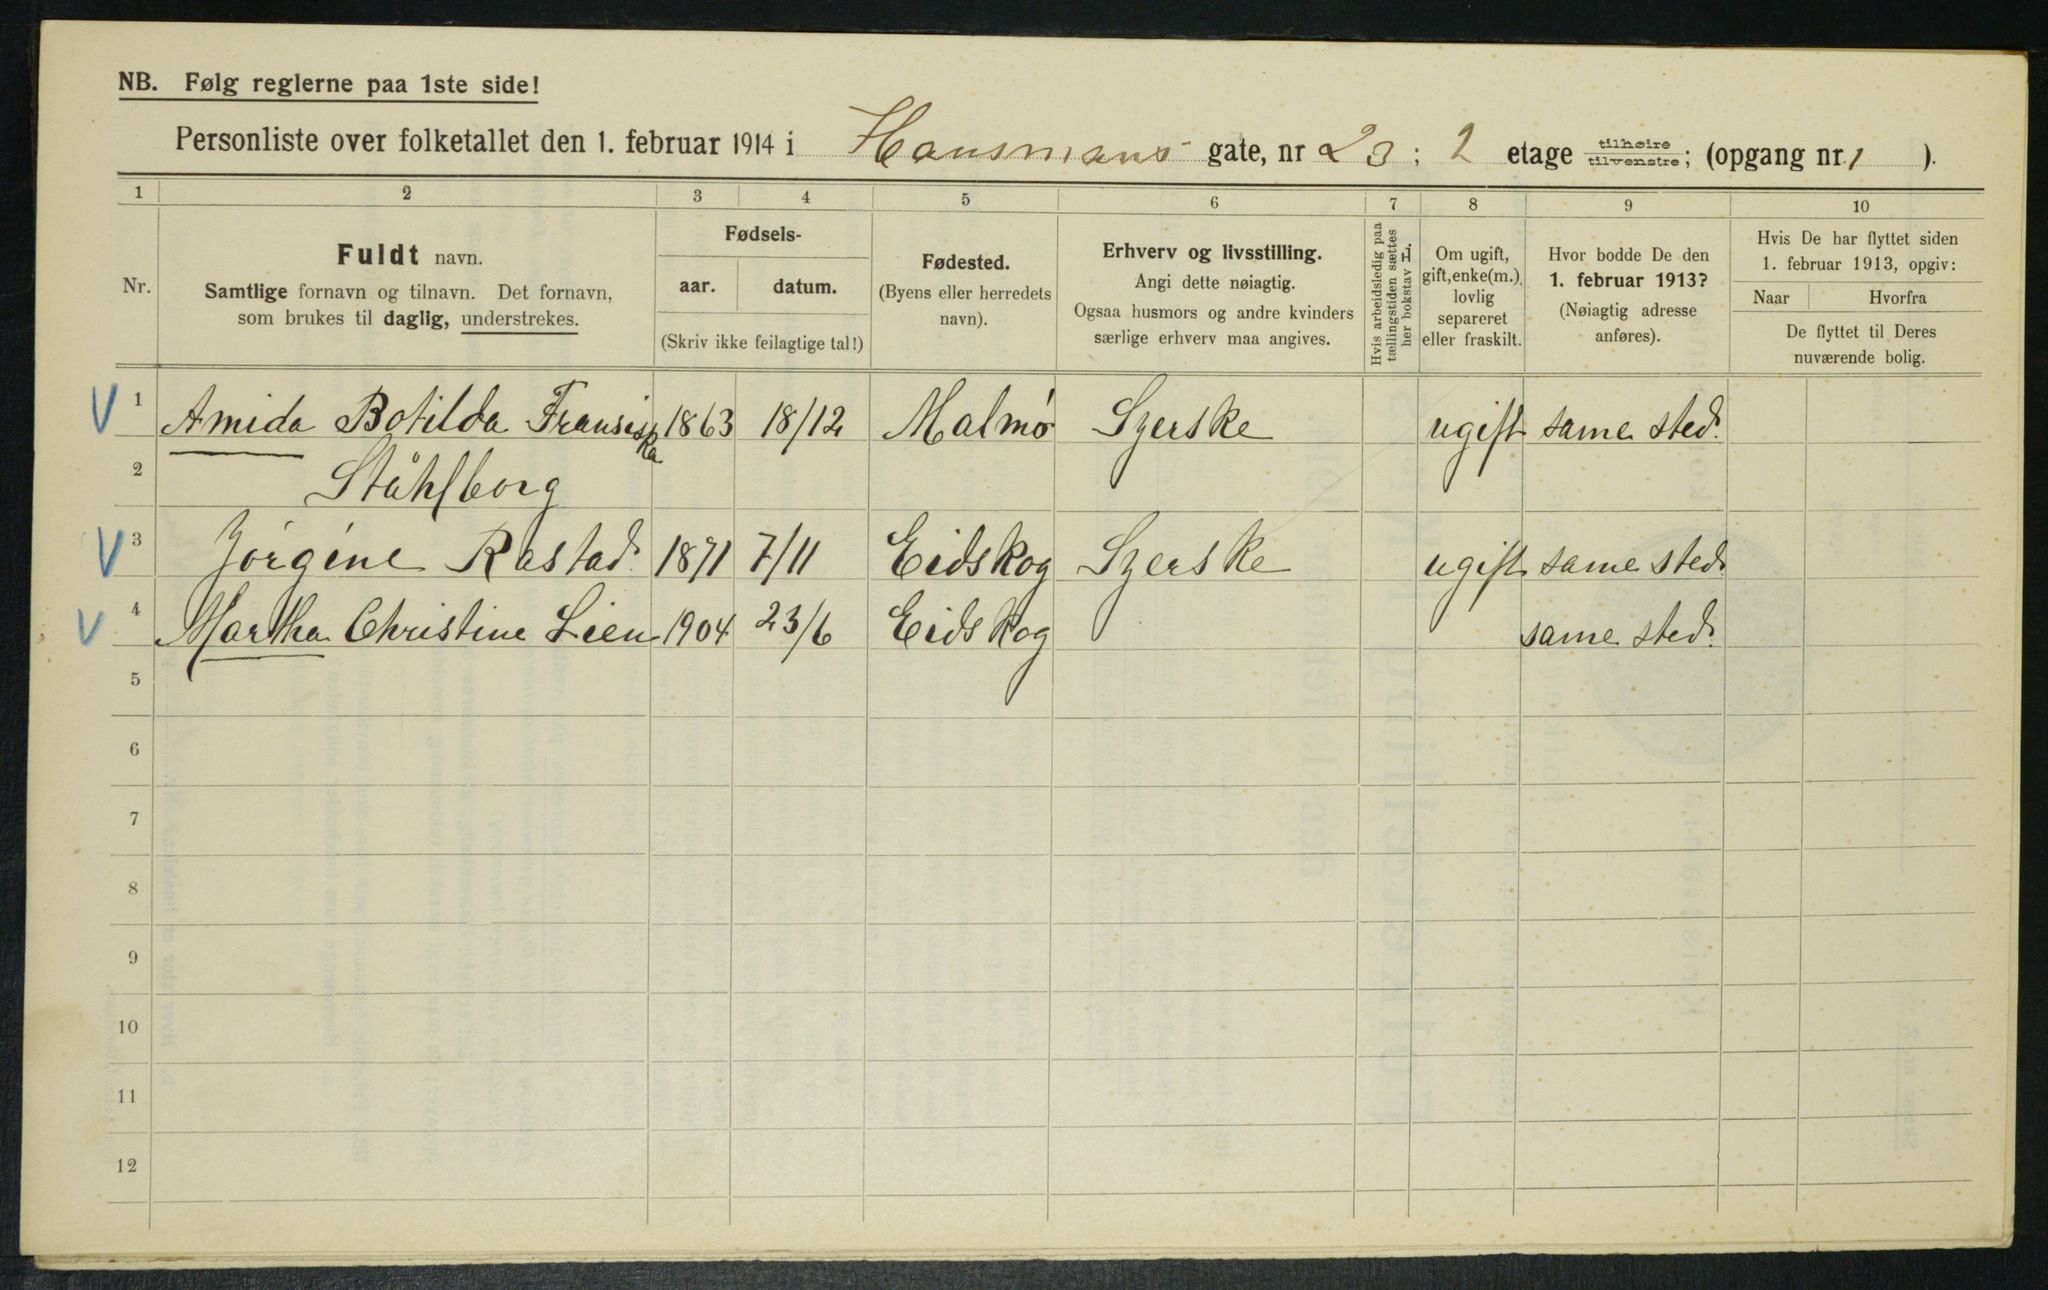 NB. Følg reglerne paa 1ste side!
Personliste over folketallet den 1. februar 1914 i Hausmans gate, nr 23; 2 etage tilhøire tilvenstre; (opgang nr. 1 ).
1 2 3 4 5 6 7 8 9 10
Nr.
Fuldt navn.
Samtlige fornavn og tilnavn. Det fornavn,
som brukes til daglig, understrekes.
Fødsels-
aar. datum.
(Skriv ikke feilagtige tal!)
Fødested.
(Byens eller herredets
navn).
Erhverv og livsstilling.
Angi dette nøiagtig.
Ogsaa husmors og andre kvinders
særlige erhverv maa angives.
Hvis arbeidsledig paa
tællingstiden sættes
her bokstav L.
Om ugift,
gift, enke(m.),
lovlig
separeret
eller fraskilt.
Hvor bodde De den
1. februar 1913?
(Nøiagtig adresse
anføres).
Hvis De har flyttet siden
1. februar 1913, opgiv:
Naar Hvorfra
De flyttet til Deres
nuværende bolig.
V 1 Amida Botilda Fransiska 1863 18/12 Malmø Syerske ugift same sted.
2 Ståhlborg
V 3 Jørgine Rastad 1871 7/11 Eidskog Syerske ugift same sted.
V 4 Martha Christine Lien 1904 23/6 Eidskog same sted.
5
6
7
8
9
10
11
12